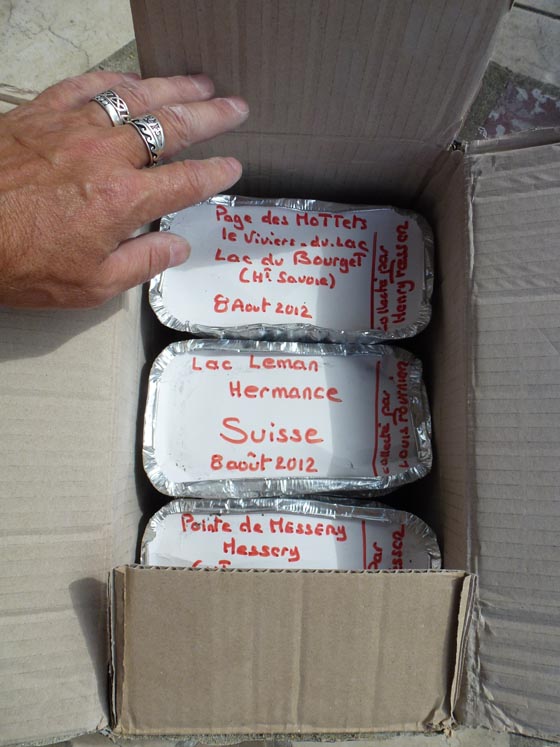 Page des MoTTets
le Viviers-du-Lac
Lac du Bourget
(Ht Savoie)
8 Aout 2012
collecté par
Henry
Lac Leman
Hermance
Suisse
8 août 2012
collecté par
Louis Fournier
Pointe de MESSERY
Messery
par